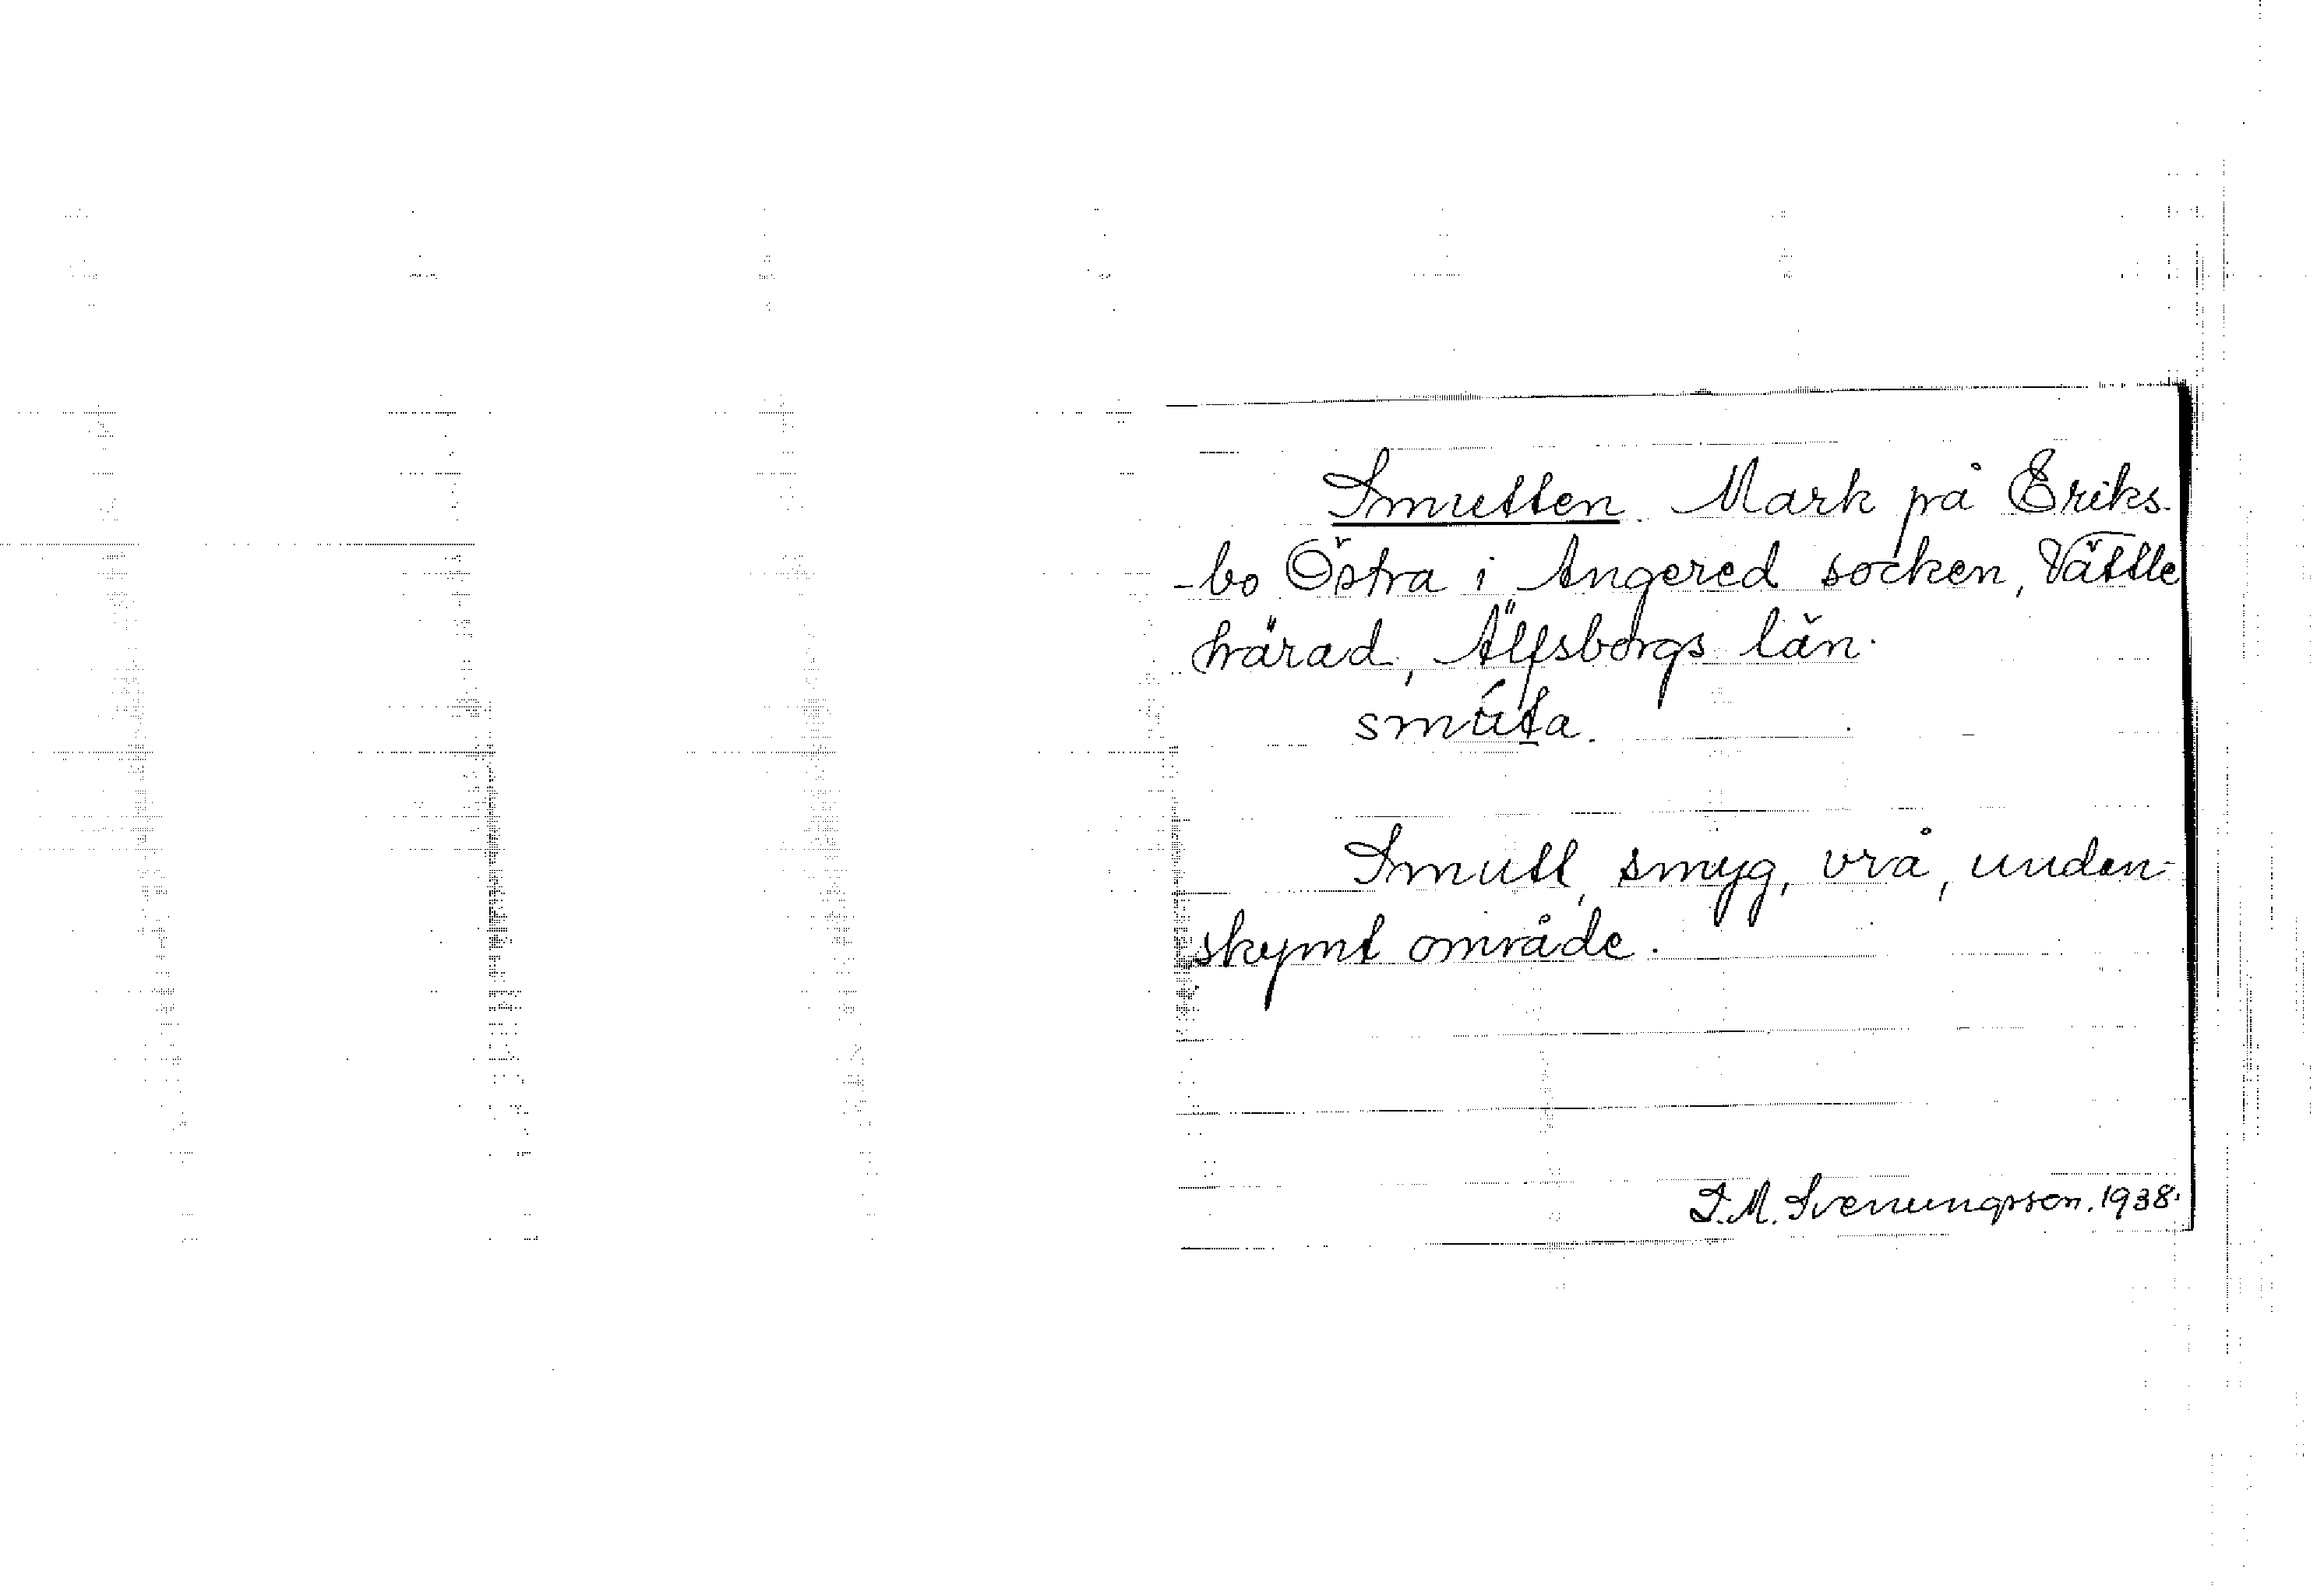 Smutten. Mark på Eriks-
-bo Östra i Angered socken, Vättle
härad, Älfsborgs län.
smúta.
Smutt, smyg, vrå, undan-
skymt område.
I.M. Svenungsson. 1938.